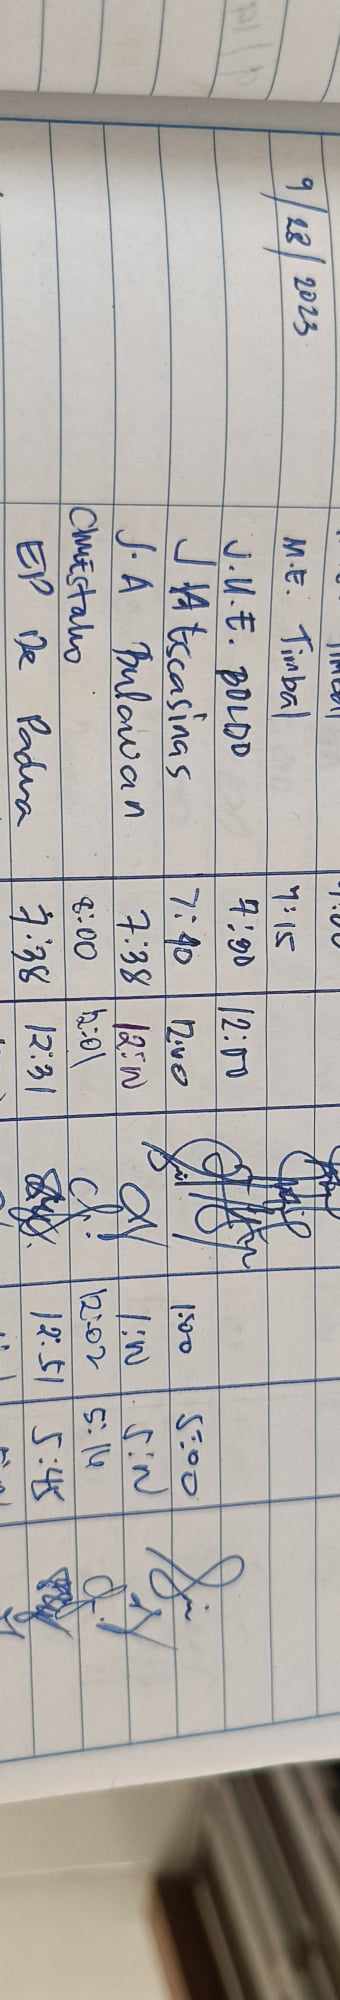 9/28/2023 M.E. Timbal 7:15
J.U.E. DOLDO 7:30 12:00
J Escasinas 7:40 12:00 1:00 5:00
J.A Bulawan 7:38 12:N 1:N 5:N
8:00 12:01 12:02 5:14
EP De Padua 7:38 12:31 12:51 5:45